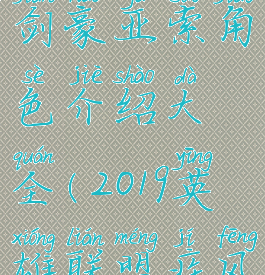 剑豪亚索角
sè jiè shào dà
色介绍大
quán yīng
全（2019英
xióng lián méng jí fēng
雄联盟疾风